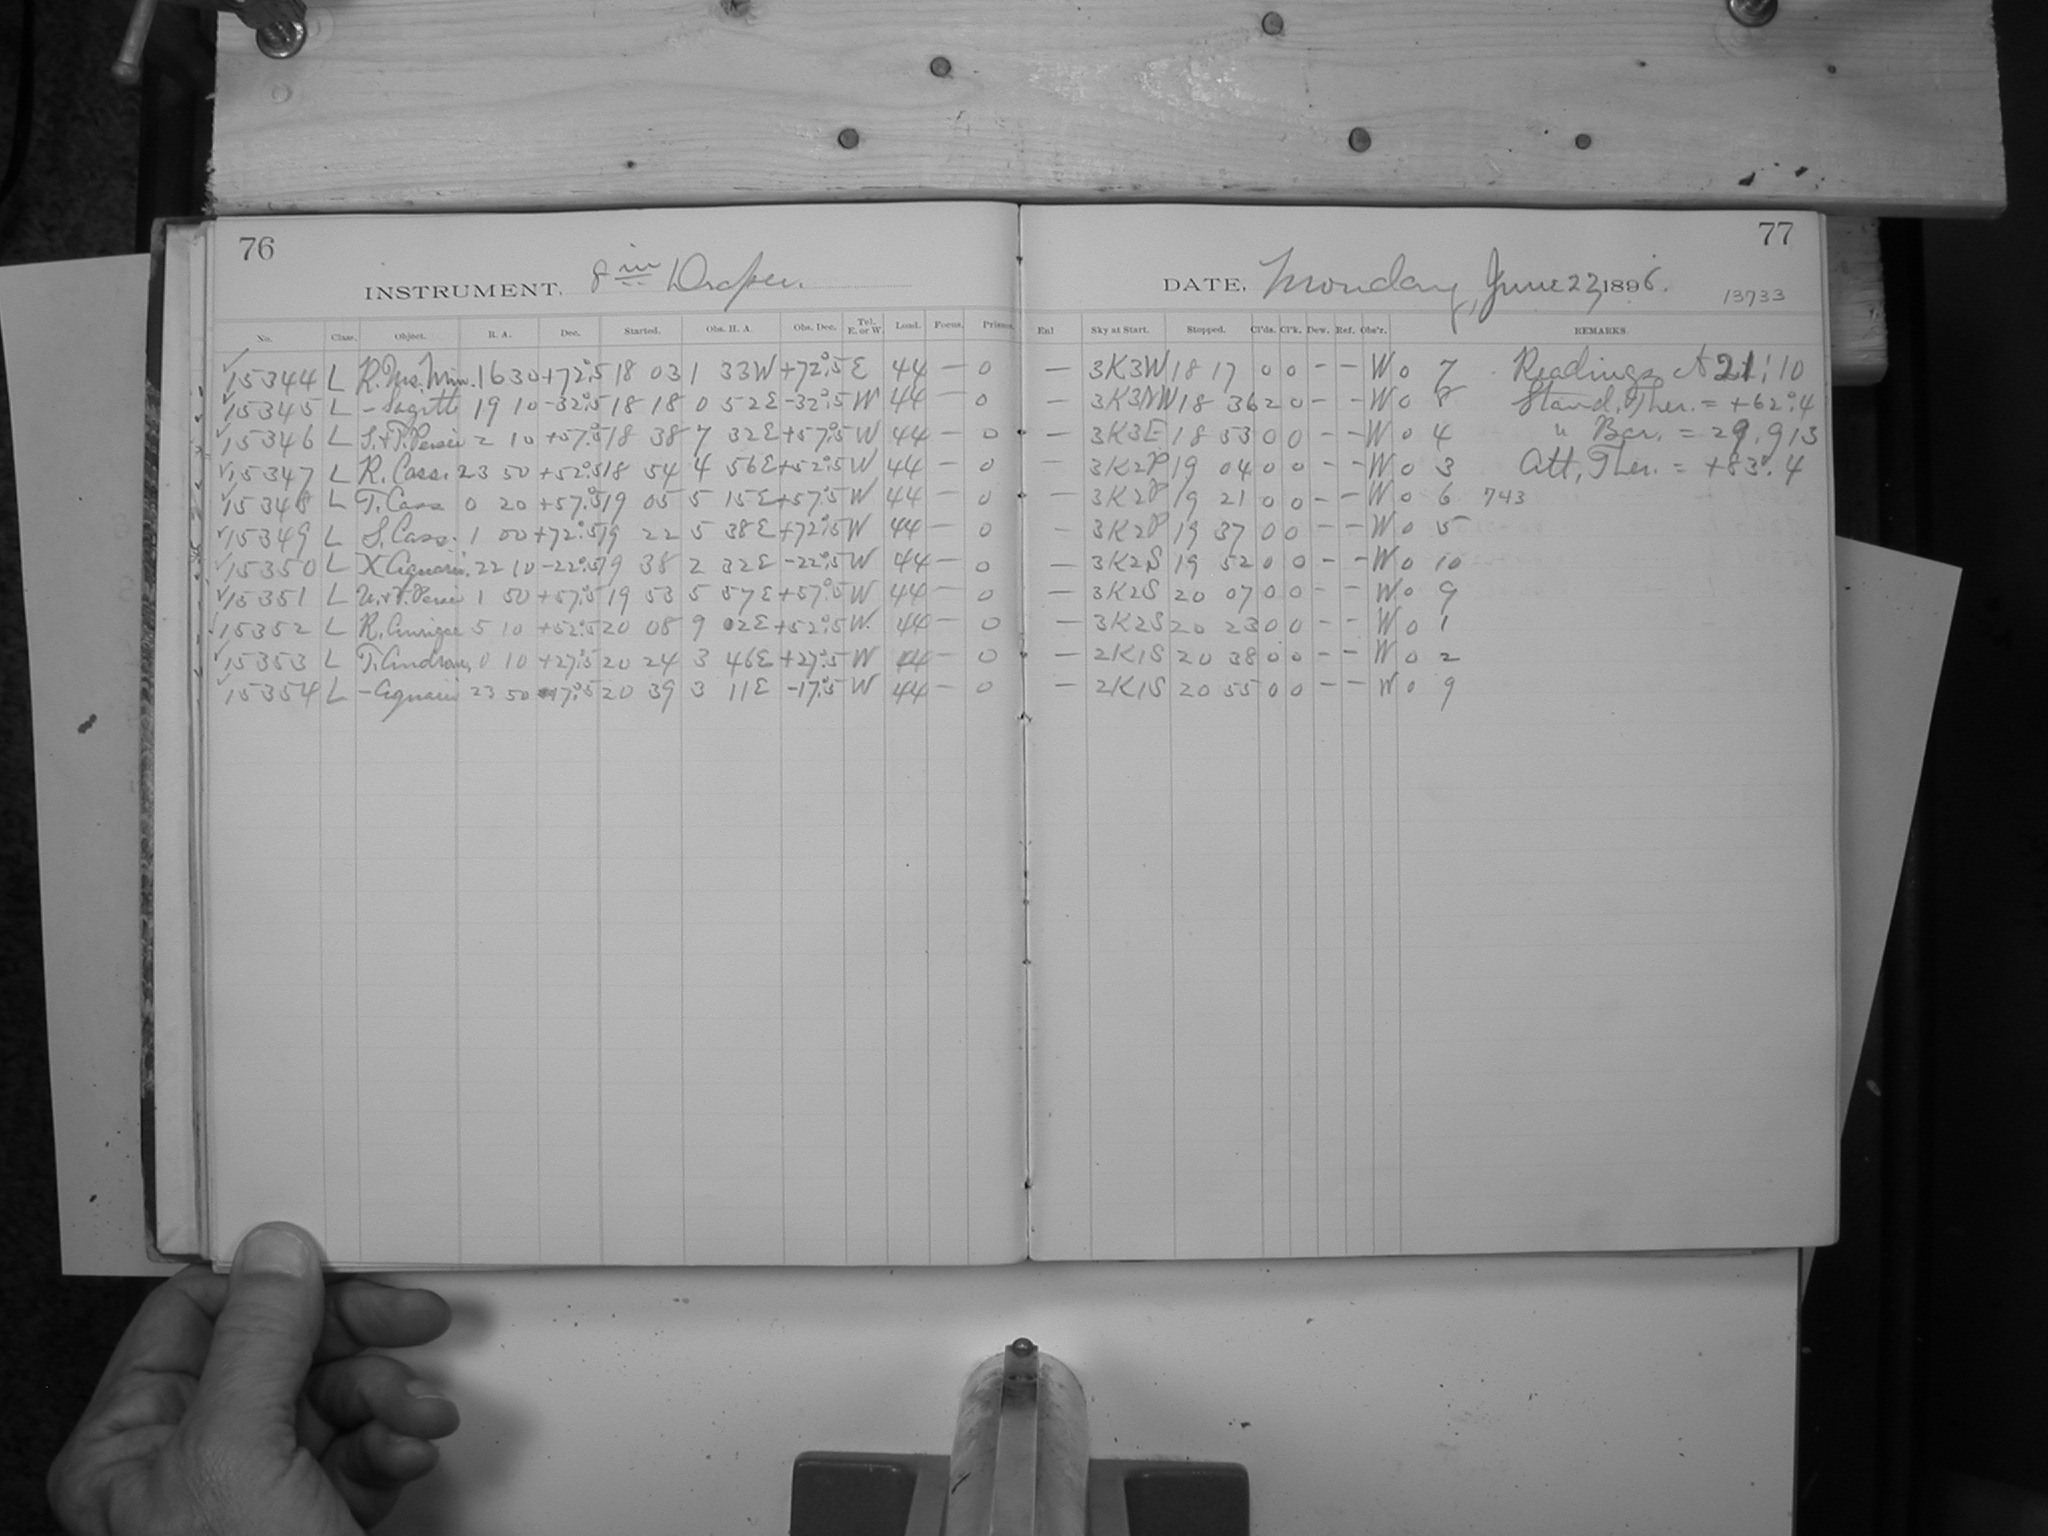 76
77
INSTRUMENT. 8 in Draper.
DATE, Monday, June 22, 1896.
13733
No. Class. Object. R. A. Dec. Started. Obs. H. A. Obs. Dec. Tel. E. or W. Load. Focus. Prisms. Enl Sky at Start. Stopped. Cl'ds. Cl'k. Dew. Ref. Obs'r. REMARKS.
✓ 15344 L R. Urs. Min. 16 30 +72°.5 18 03 1 33W +72°.5 E 44 — 0 — 3K3W 18 17 0 0 – – W 0 7 Readings At 21:10
✓ 15345 L – Sagitt 19 10 -32°.5 18 18 0 52E -32°.5 W 44 — 0 — 3K3NW 18 36 2 0 – – W 0 8 Stand. Ther. = +62°.4
✓ 15346 L S.+T. Persei 2 10 +57°.5 18 38 7 32E +57°.5 W 44 — 0 — 3K3E 18 53 0 0 – – W 0 4 " Bar. = 29.913
✓ 15347 L R. Cass. 23 50 +52°.5 18 54 4 56E +52°.5 W 44 — 0 — 3K2P 19 04 0 0 – – W 0 3 Att. Ther. = +83°.4
✓ 15348 L T. Cass 0 20 +57°.5 19 05 5 15E +57°.5 W 44 — 0 — 3K2P 19 21 0 0 – – W 0 6 743
✓ 15349 L S. Cass. 1 00 +72°.5 19 22 5 38E +72°.5 W 44 — 0 — 3K2P 19 37 0 0 – – W 0 5
✓ 15350 L X Aquarii. 22 10 -22°.5 19 38 2 32E -22°.5 W 44 — 0 — 3K2S 19 52 0 0 – – W 0 10
✓ 15351 L U.+V. Persei 1 50 +57°.5 19 53 5 57E +57°.5 W 44 — 0 — 3K2S 20 07 0 0 – – W 0 9
✓ 15352 L R. Aurigae 5 10 +52°.5 20 08 9 02E +52°.5 W. 44 — 0 — 3K2S 20 23 0 0 – – W 0 1
✓ 15353 L T. Androm. 0 10 +27°.5 20 24 3 46E +27°.5 W 44 — 0 — 2K1S 20 38 0 0 – – W 0 2
✓ 15354 L – Aquarii 23 50 -17°.5 20 39 3 11E -17°.5 W 44 — 0 — 2K1S 20 55 0 0 – – W 0 9